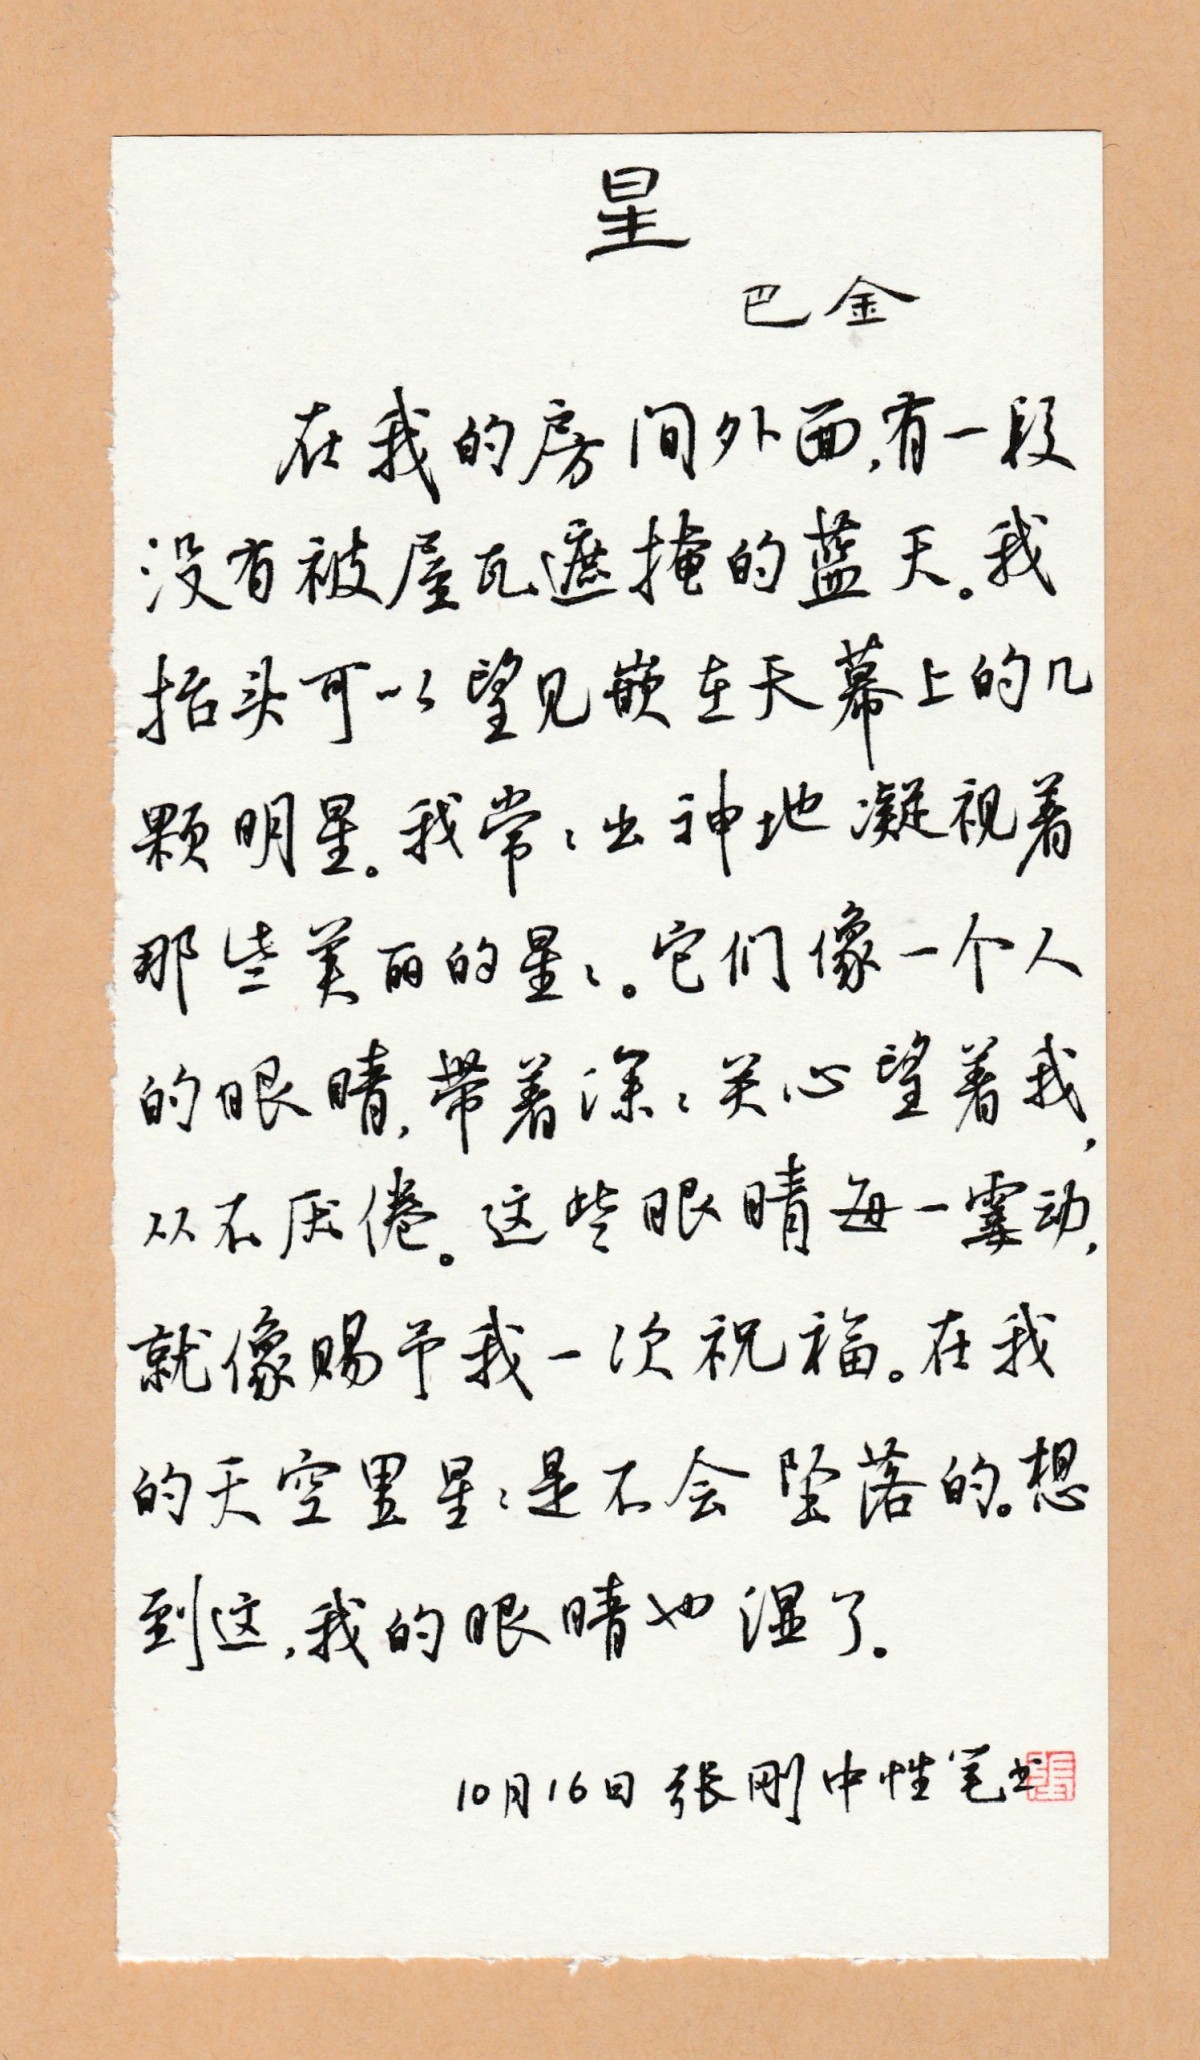 星
巴金
在我的房间外面,有一段
没有被屋瓦遮掩的蓝天。我
抬头可以望见嵌在天幕上的几
颗明星。我常々出神地凝视着
那些美丽的星々。它们像一个人
的眼睛,带着深々关心望着我,
从不厌倦。这些眼睛每一霎动,
就像赐予我一次祝福。在我
的天空里星々是不会坠落的。想
到这,我的眼睛也湿了。
10月16日 张刚中性笔书